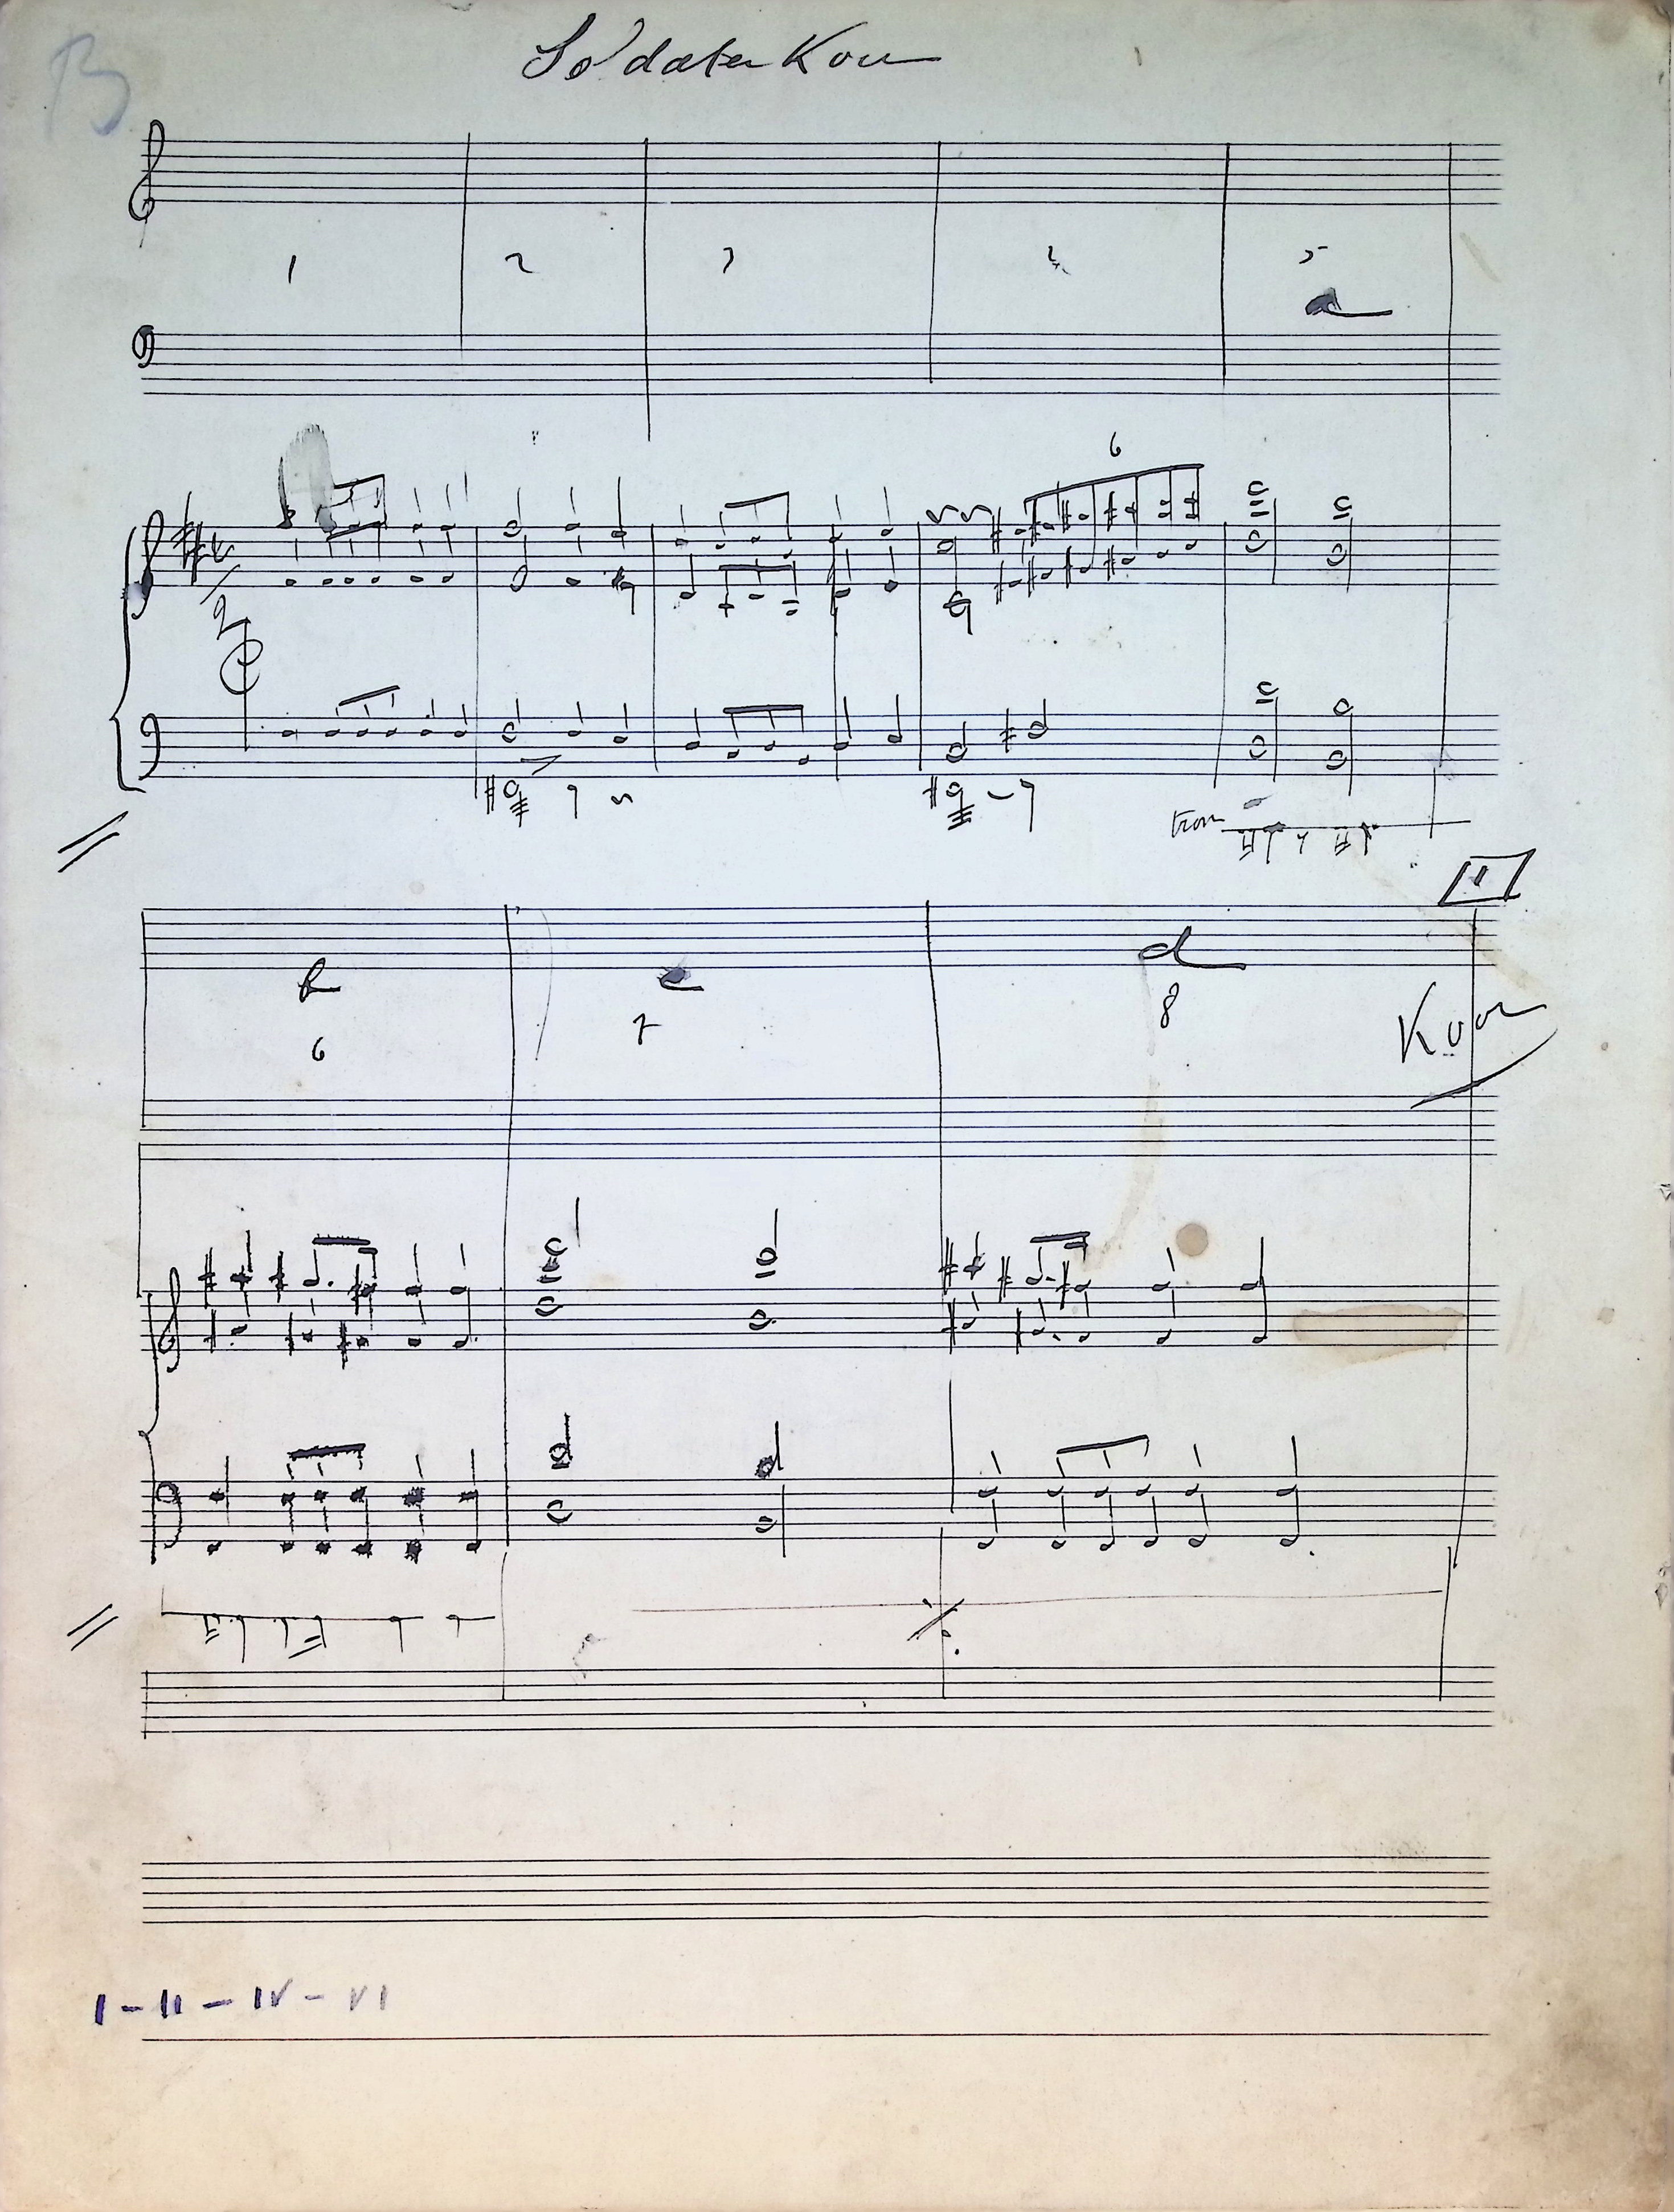 B
Soldaten Koor
1 2 3 4 5
a
6
2
Trom
1
R c d
6 7 8
Koor
I - II - IV - VI